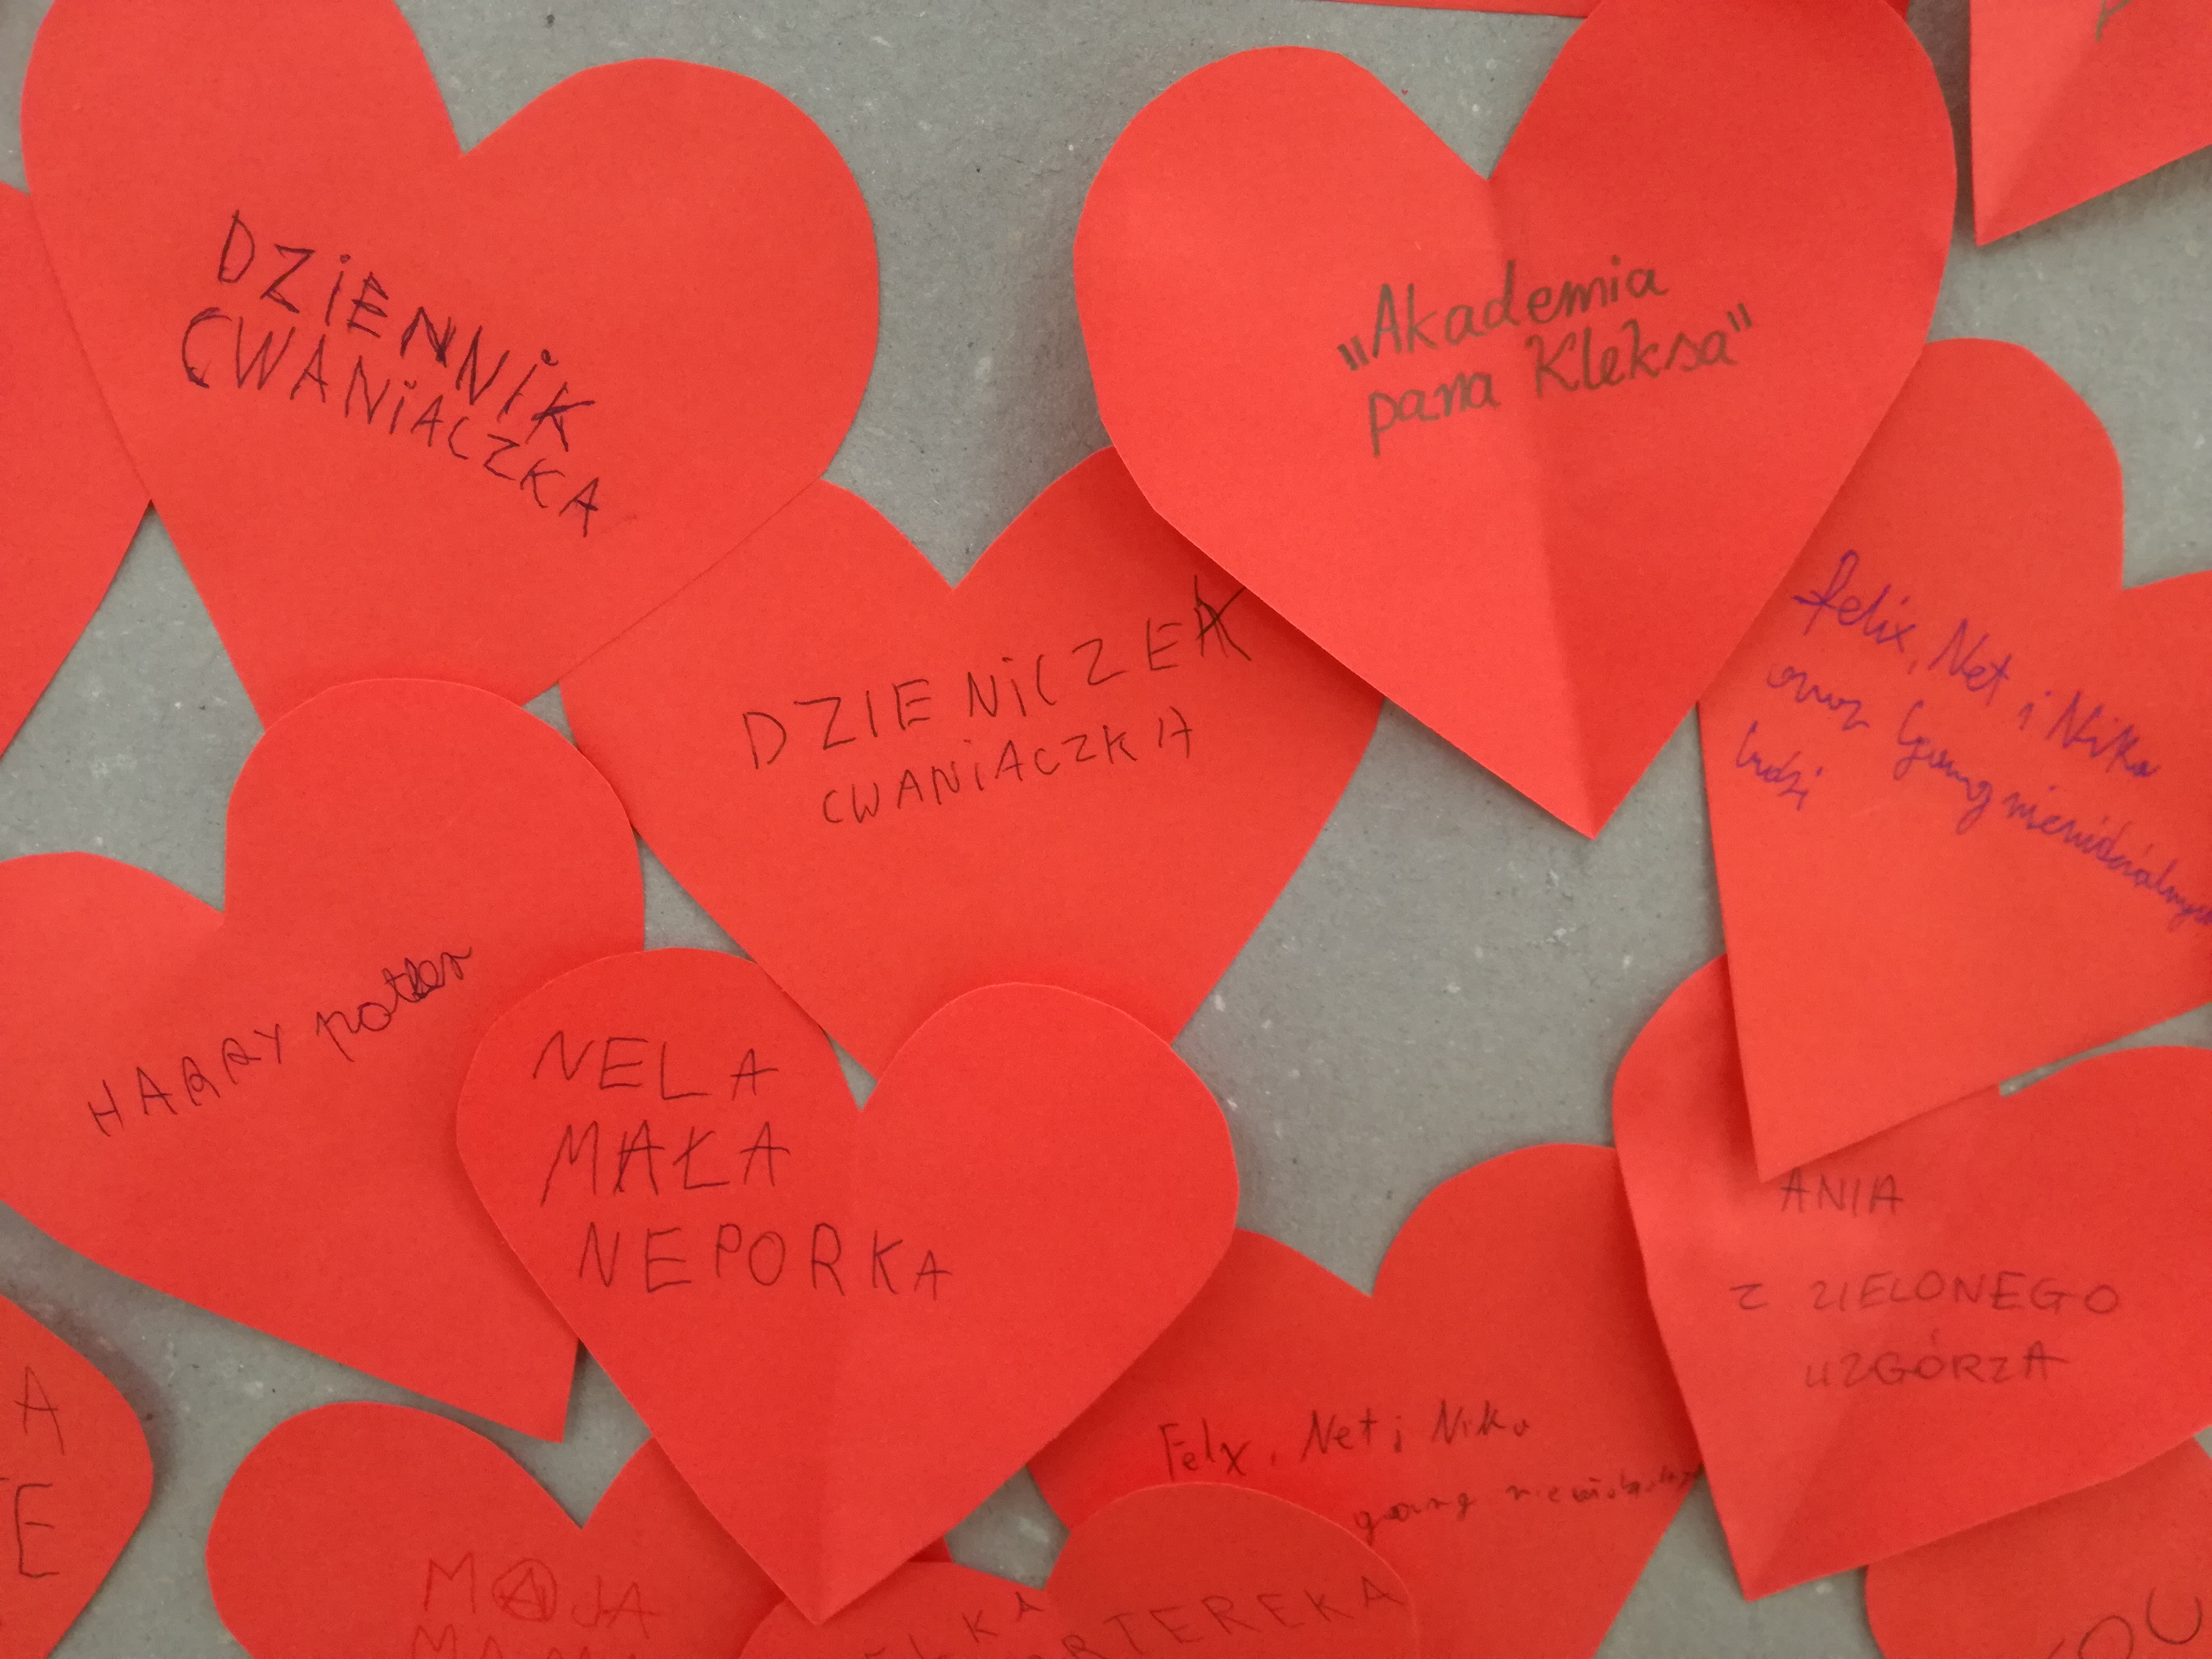 DZiENNiK
CWANiACZKA
„Akademia
pana Kleksa"
DZIENiCZEK
CWANiACZKA
felix, Net i Nika
oraz Gang niewidzialnych
ludzi
HARRY potter
NELA
MAŁA
NEPORKA
ANIA
Z ZIELONEGO
UZGÓRZA
Felx, Net i Nika
gang
A
E
MAJA
MAMA